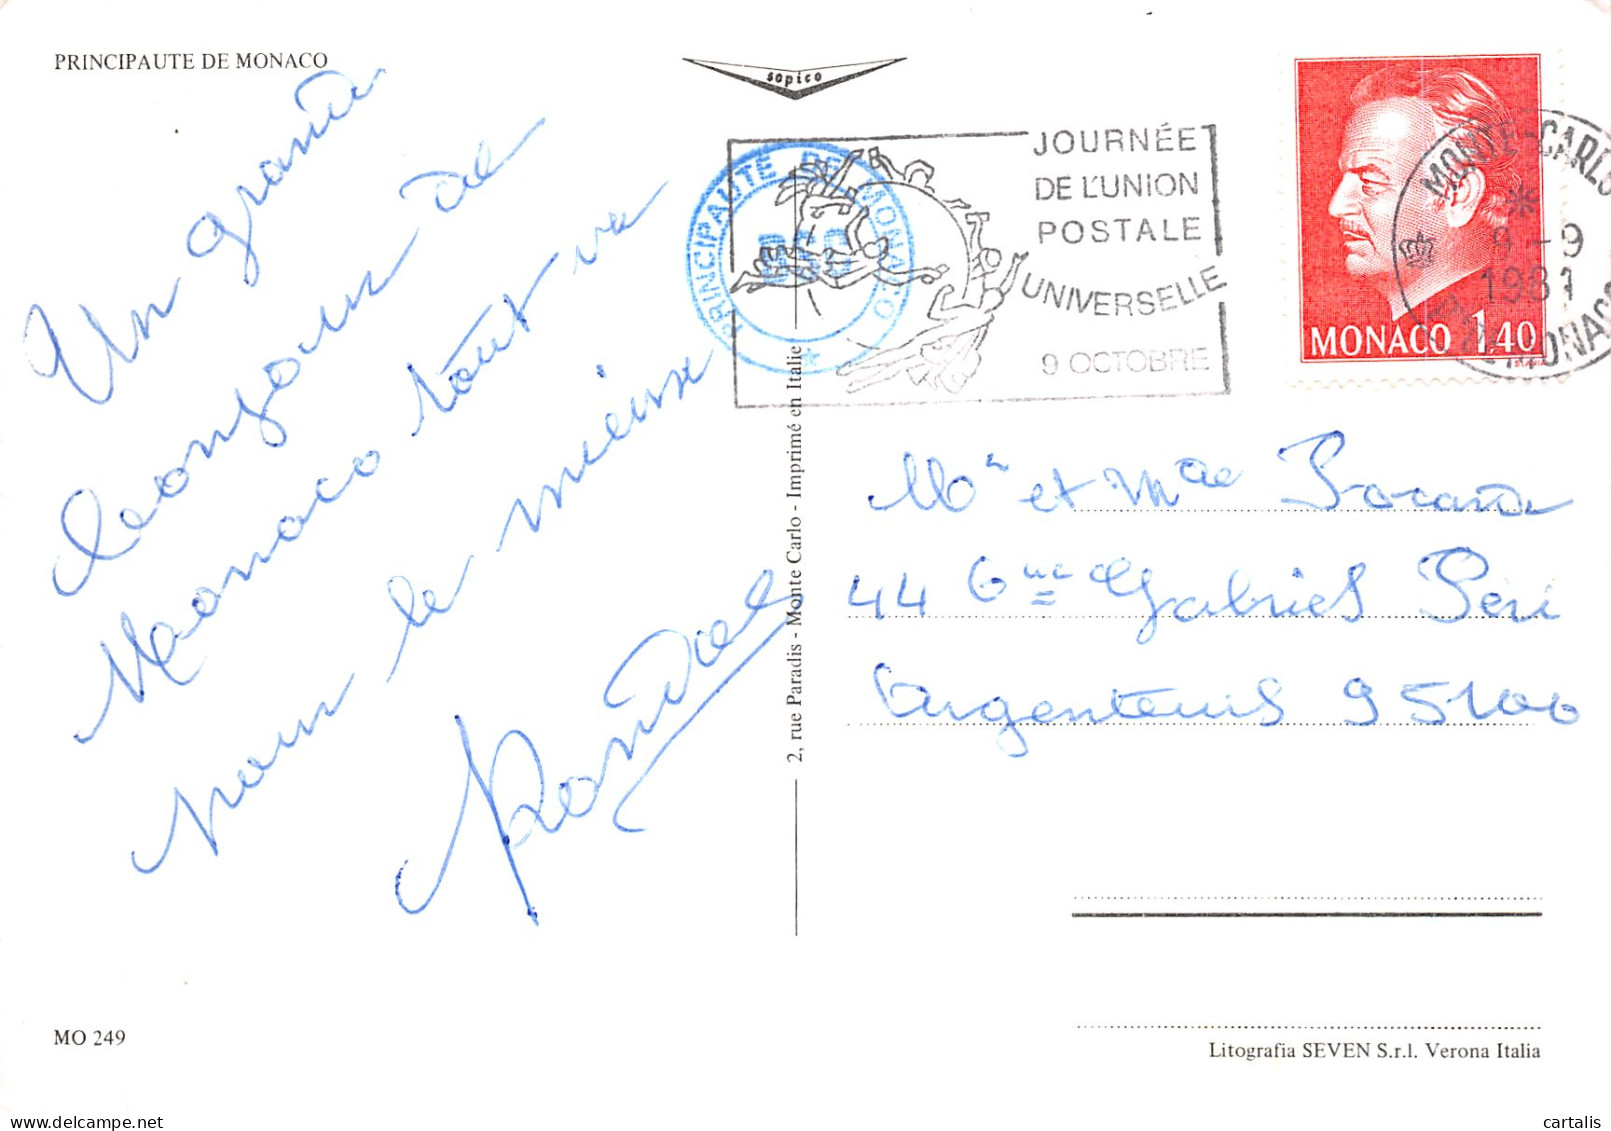 PRINCIPAUTE DE MONACO
sopico
Un grand
bonjour de
Monaco tout va
pour le mieux
2, rue Paradis - Monte Carlo - Imprimé en Italie
PRINCIPAUTE DE MONACO
JOURNÉE
DE L'UNION
POSTALE
UNIVERSELLE
9 OCTOBRE
MONACO 1,40
MONTE-CARLO
9 - 9
1981
MONACO
Mr et Mde
44 Gabriel Péri
Argenteuil 95100
MO 249
Litografia SEVEN S.r.l. Verona Italia
cartalis